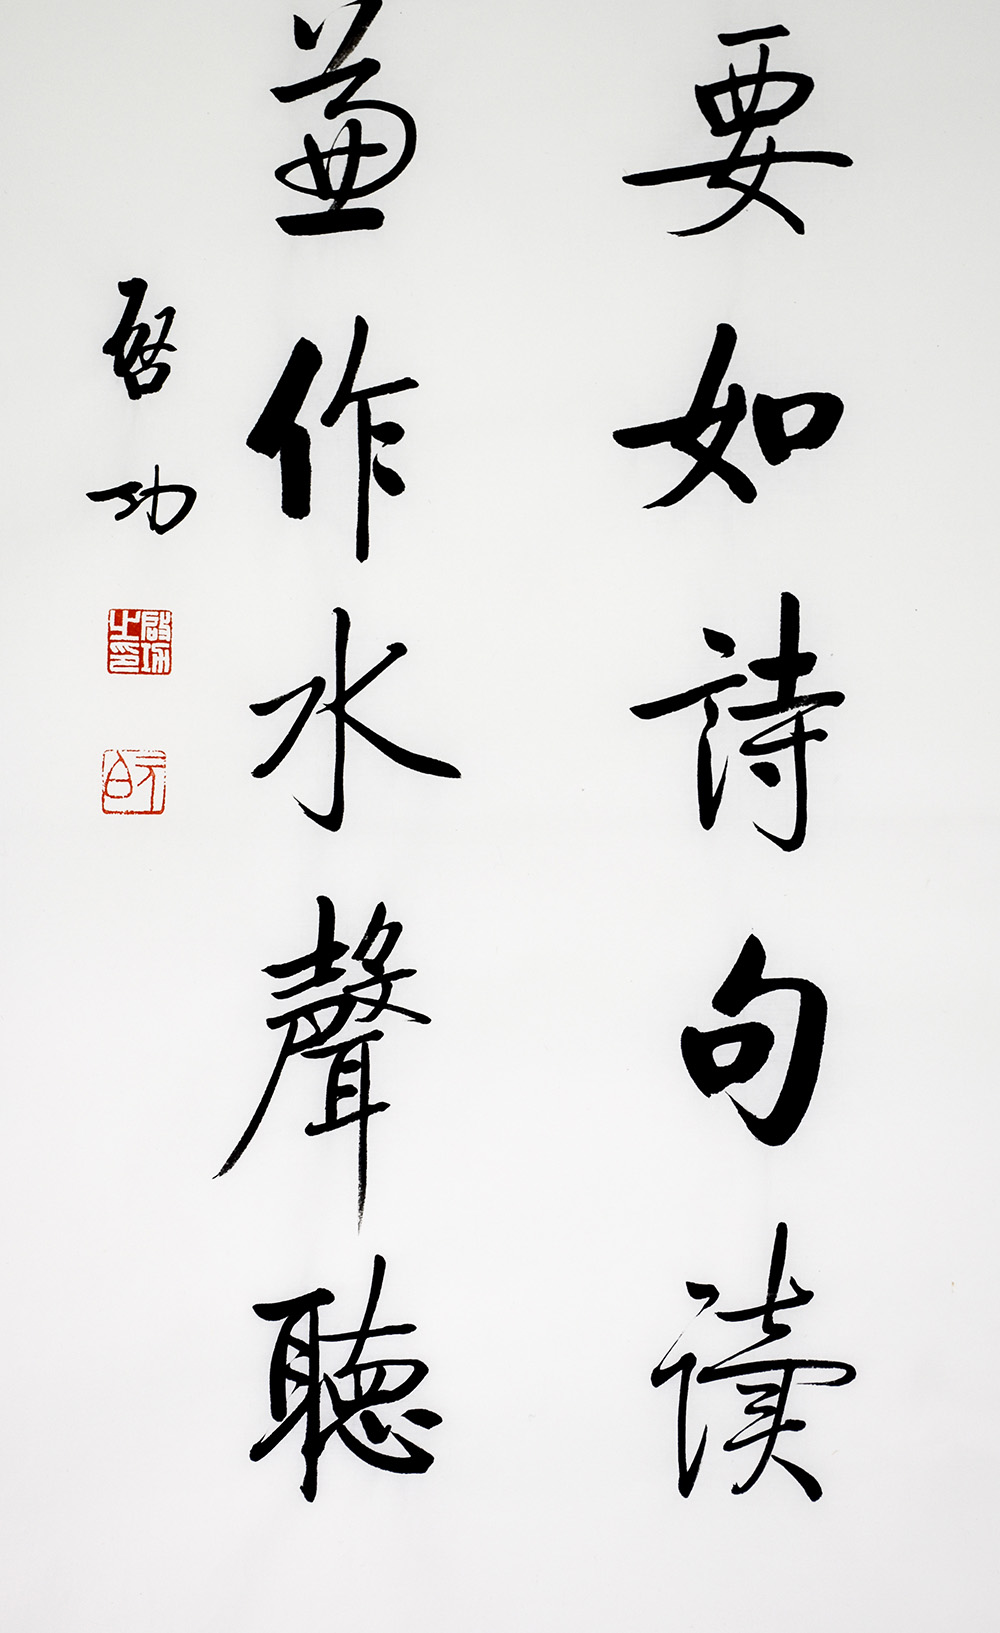 要如詩句讀
兼作水聲聽
啓功
啓功之印
元白